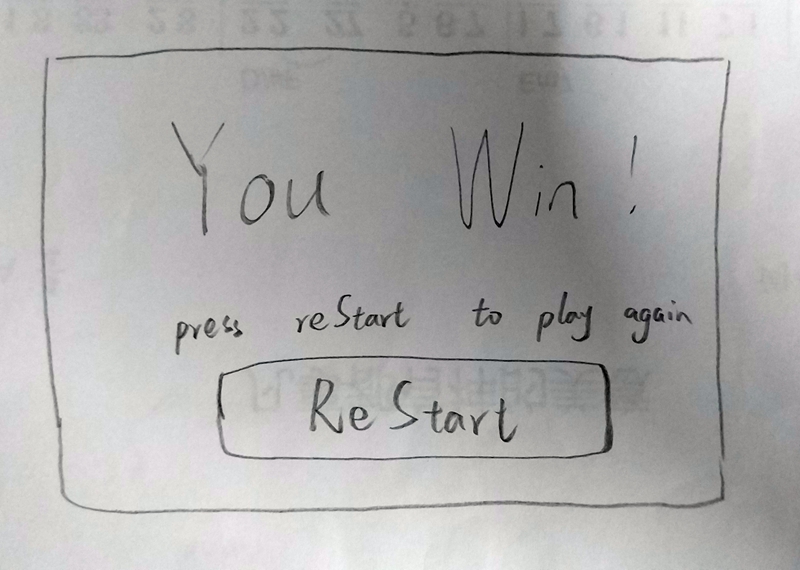 You Win!
press restart to play again
ReStart